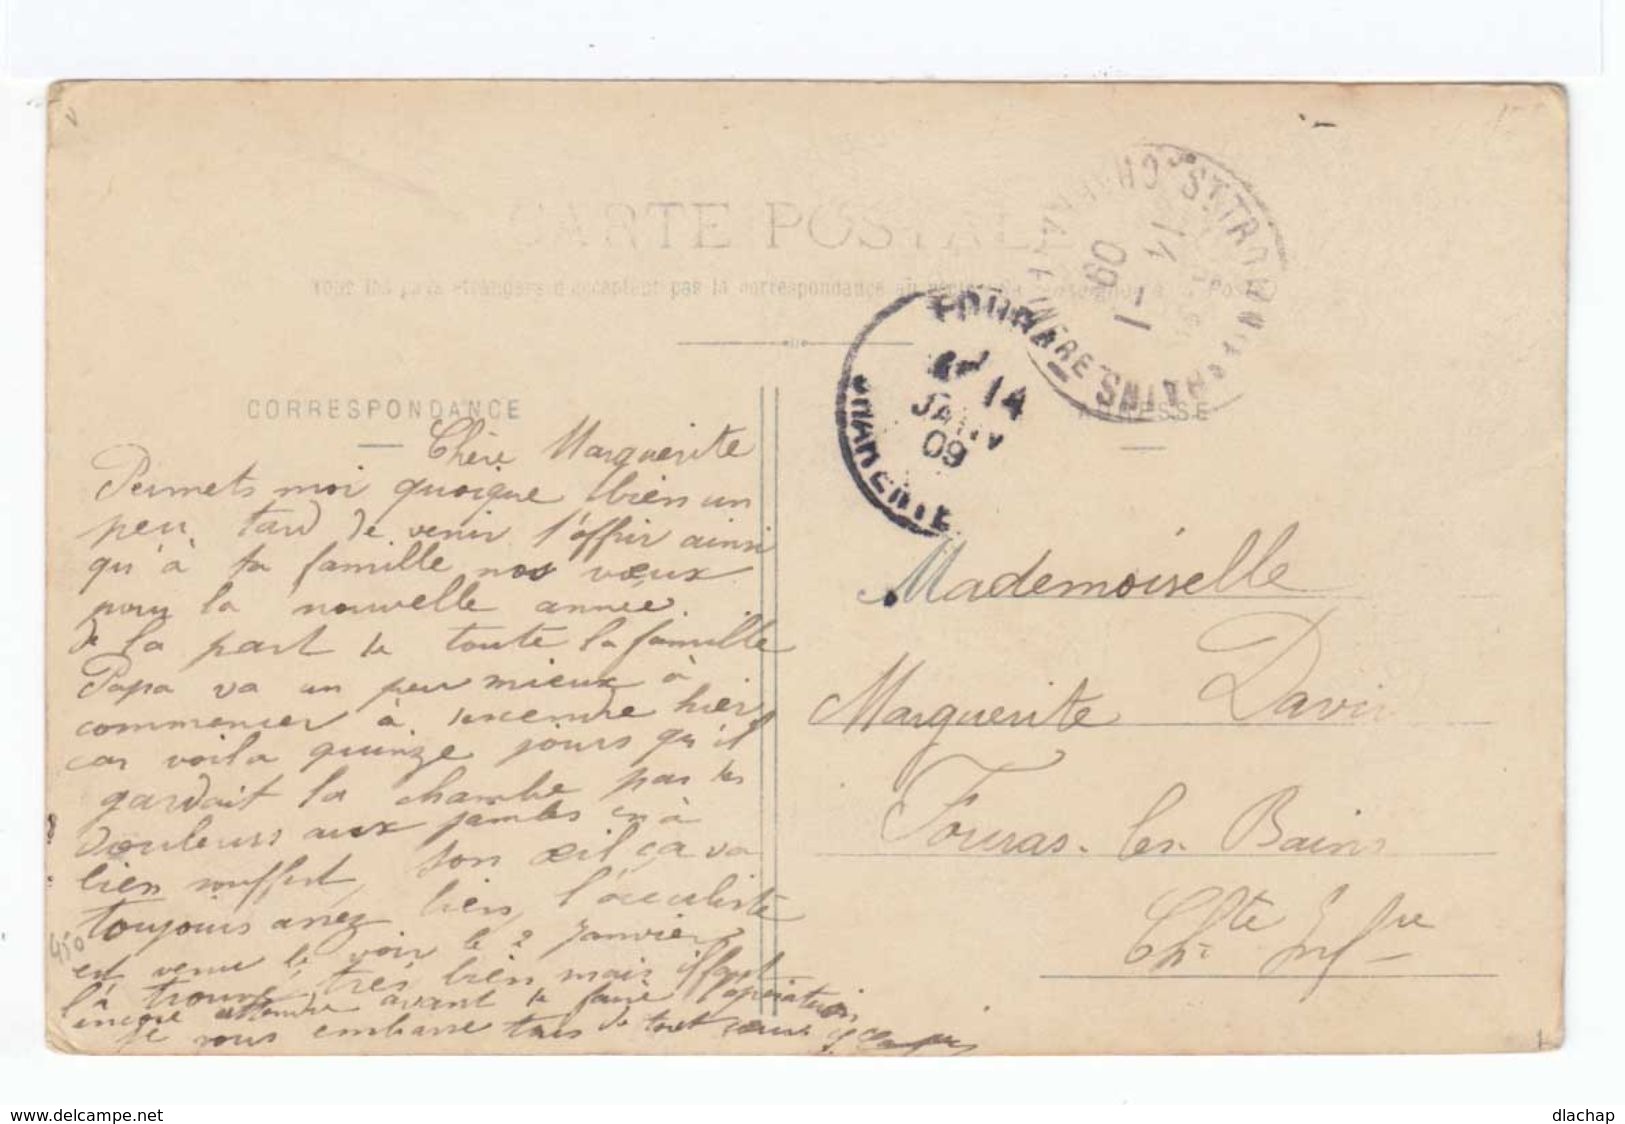 CARTE POSTALE
Tous les pays étrangers n'acceptent pas la correspondance au recto
CORRESPONDANCE
ADRESSE
ST TROJAN
14
1
09
14
JANV
09
Chère Marguerite
Permets moi quoique bien un
peu tard de venir t'offrir ainsi
qu'à ta famille nos vœux
pour la nouvelle année.
de la part de toute la famille
Papa va un peu mieux à
commencer à descendre hier
car voila quinze jours qu'il
gardait la chambre par des
douleurs aux jambes en à
bien souffert, son œil ça va
toujours assez bien, l'occuliste
est venu le voir le 2 Janvier
l'à trouvé très bien mais il faut
encore attendre avant de faire l'opération
Je vous embrasse tous de tout cœur
450
Mademoiselle
Marguerite David
Fouras-les-Bains
Chte Infre
www.delcampe.net
dlachap